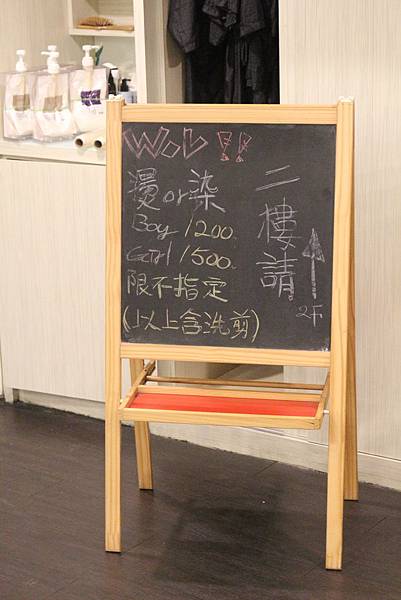 WOW!!
燙or染
Boy 1200.
Girl 1500.
限不指定
(以上含洗剪)
二樓請
2F